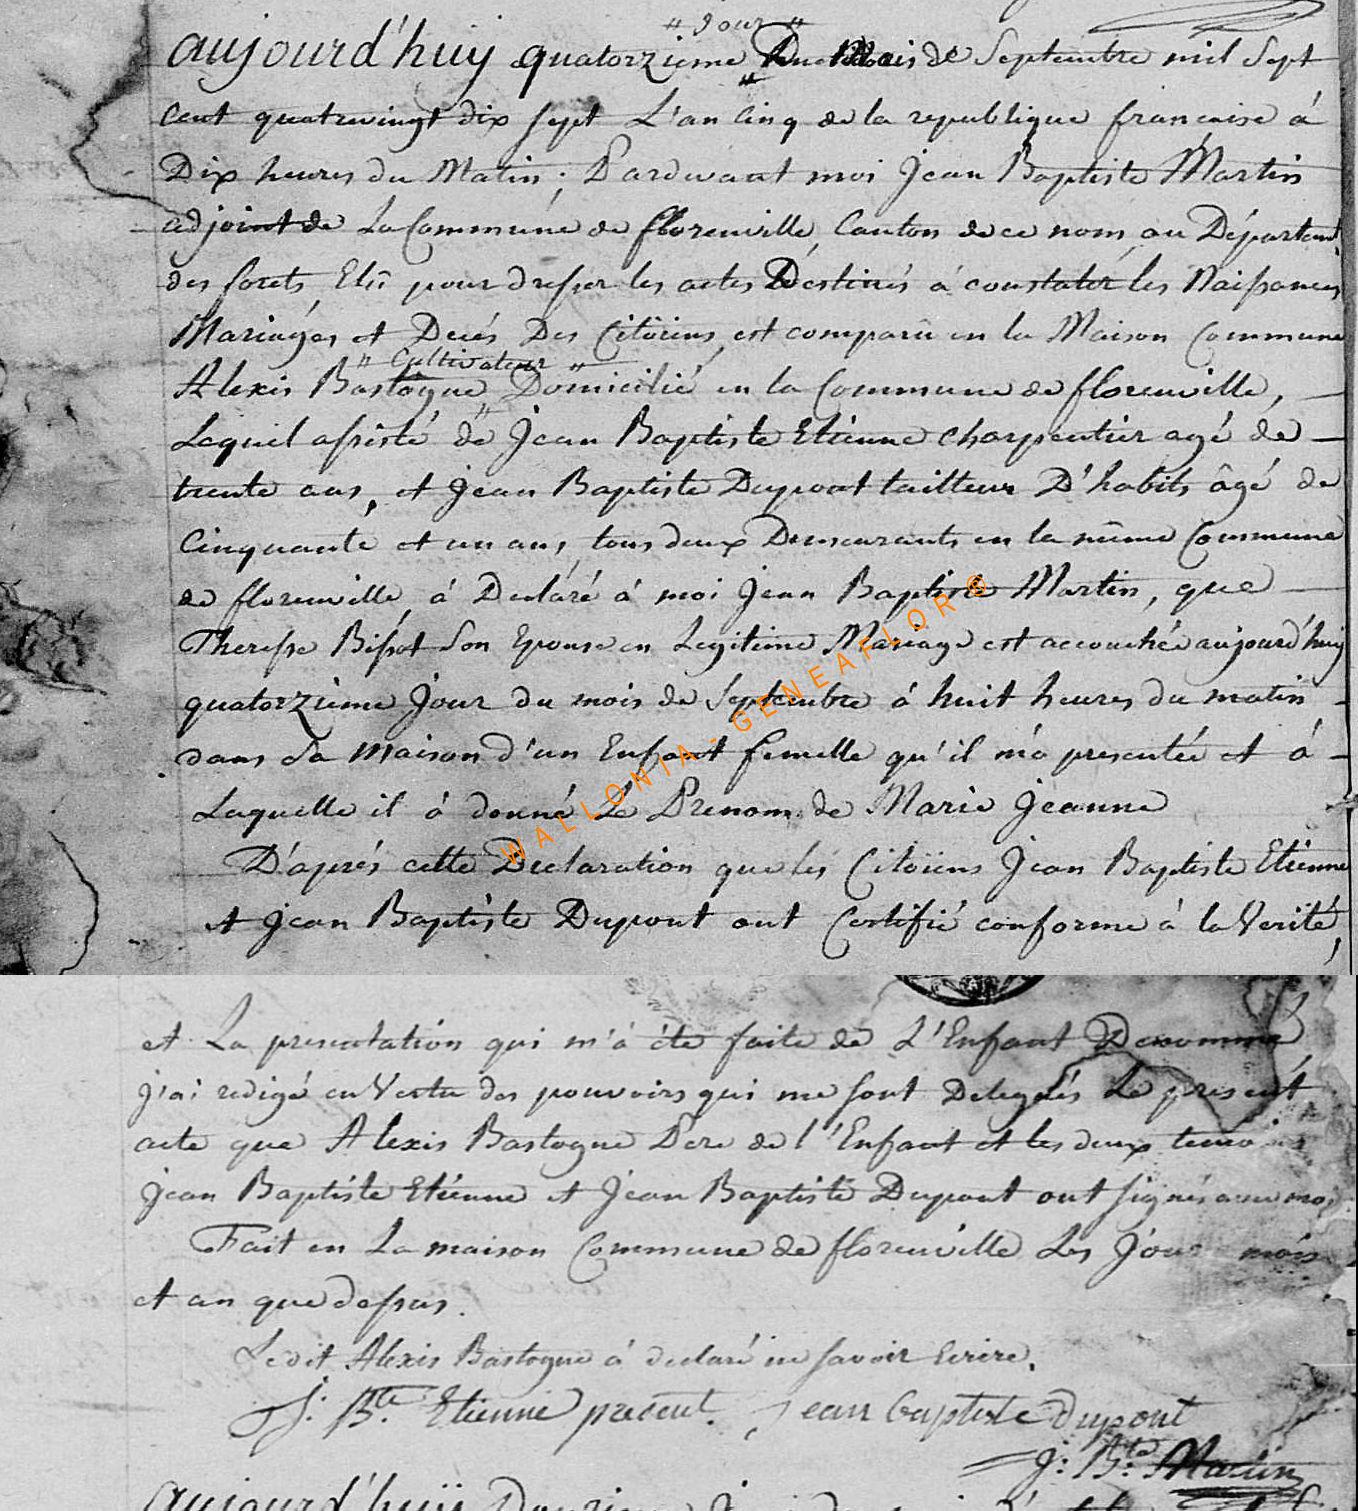 " Jour "
aujourd'huy quatorzieme Du Mois de Septembre mil Sept
cent quatrevingt dix sept L'an cinq de la republique francaise á
Dix heures du Matin ; Pardevant moi Jean Baptiste Martin
adjoint de La Commune de florenville, Canton de ce nom, au Départemt
des forets, Elû pour dresser les actes Déstinés á constatér les Naissances
Mariáges et Decés Des Citöiens, est comparû en la Maison Commune
" Cultivateur "
Alexis Bastogne Domicilié en la Commune de florenville,
Lequel assisté de Jean Baptiste Etienne charpentier agé de
trente ans, et Jean Baptiste Dupont tailleur D'habits âgé de
Cinquante et un ans, tous deux Demeurants en la même Commune
de florenville, á Declaré á moi Jean Baptiste Martin, que
Therese Bissot Son Epouse en Legitime Mariage est accouchée aujourd'huy
quatorzieme Jour du mois de Septembre á huit heures du matin
dans Sa Maison d'un Enfant femelle qu'il m'a presentée et á
Laquelle il á donné Le Prenom de Marie Jeanne
D'aprés cette Declaration que les Citoïens Jean Baptiste Etienne
et Jean Baptiste Dupont ont Certifié conforme á la Verité,
WALLONIA - GENEAFLOR ©
et La presentation qui m'á éte faite de L'Enfant Denommé
j'ai redigé en Vertu des pouvoirs qui me sont Delegués Le present
acte que Alexis Bastogne Pere de l'Enfant et les deux temoins
Jean Baptiste Etienne et Jean Baptiste Dupont ont signés avec moi
Fait en La maison Commune de florenville Les Jour mois
et an que dessus.
Ledit Alexis Bastogne á declaré ne savoir Ecrire.
J: Bte. Etienne present. Jean baptiste Dupont
J: Bte: Martin
aujourd'huÿ